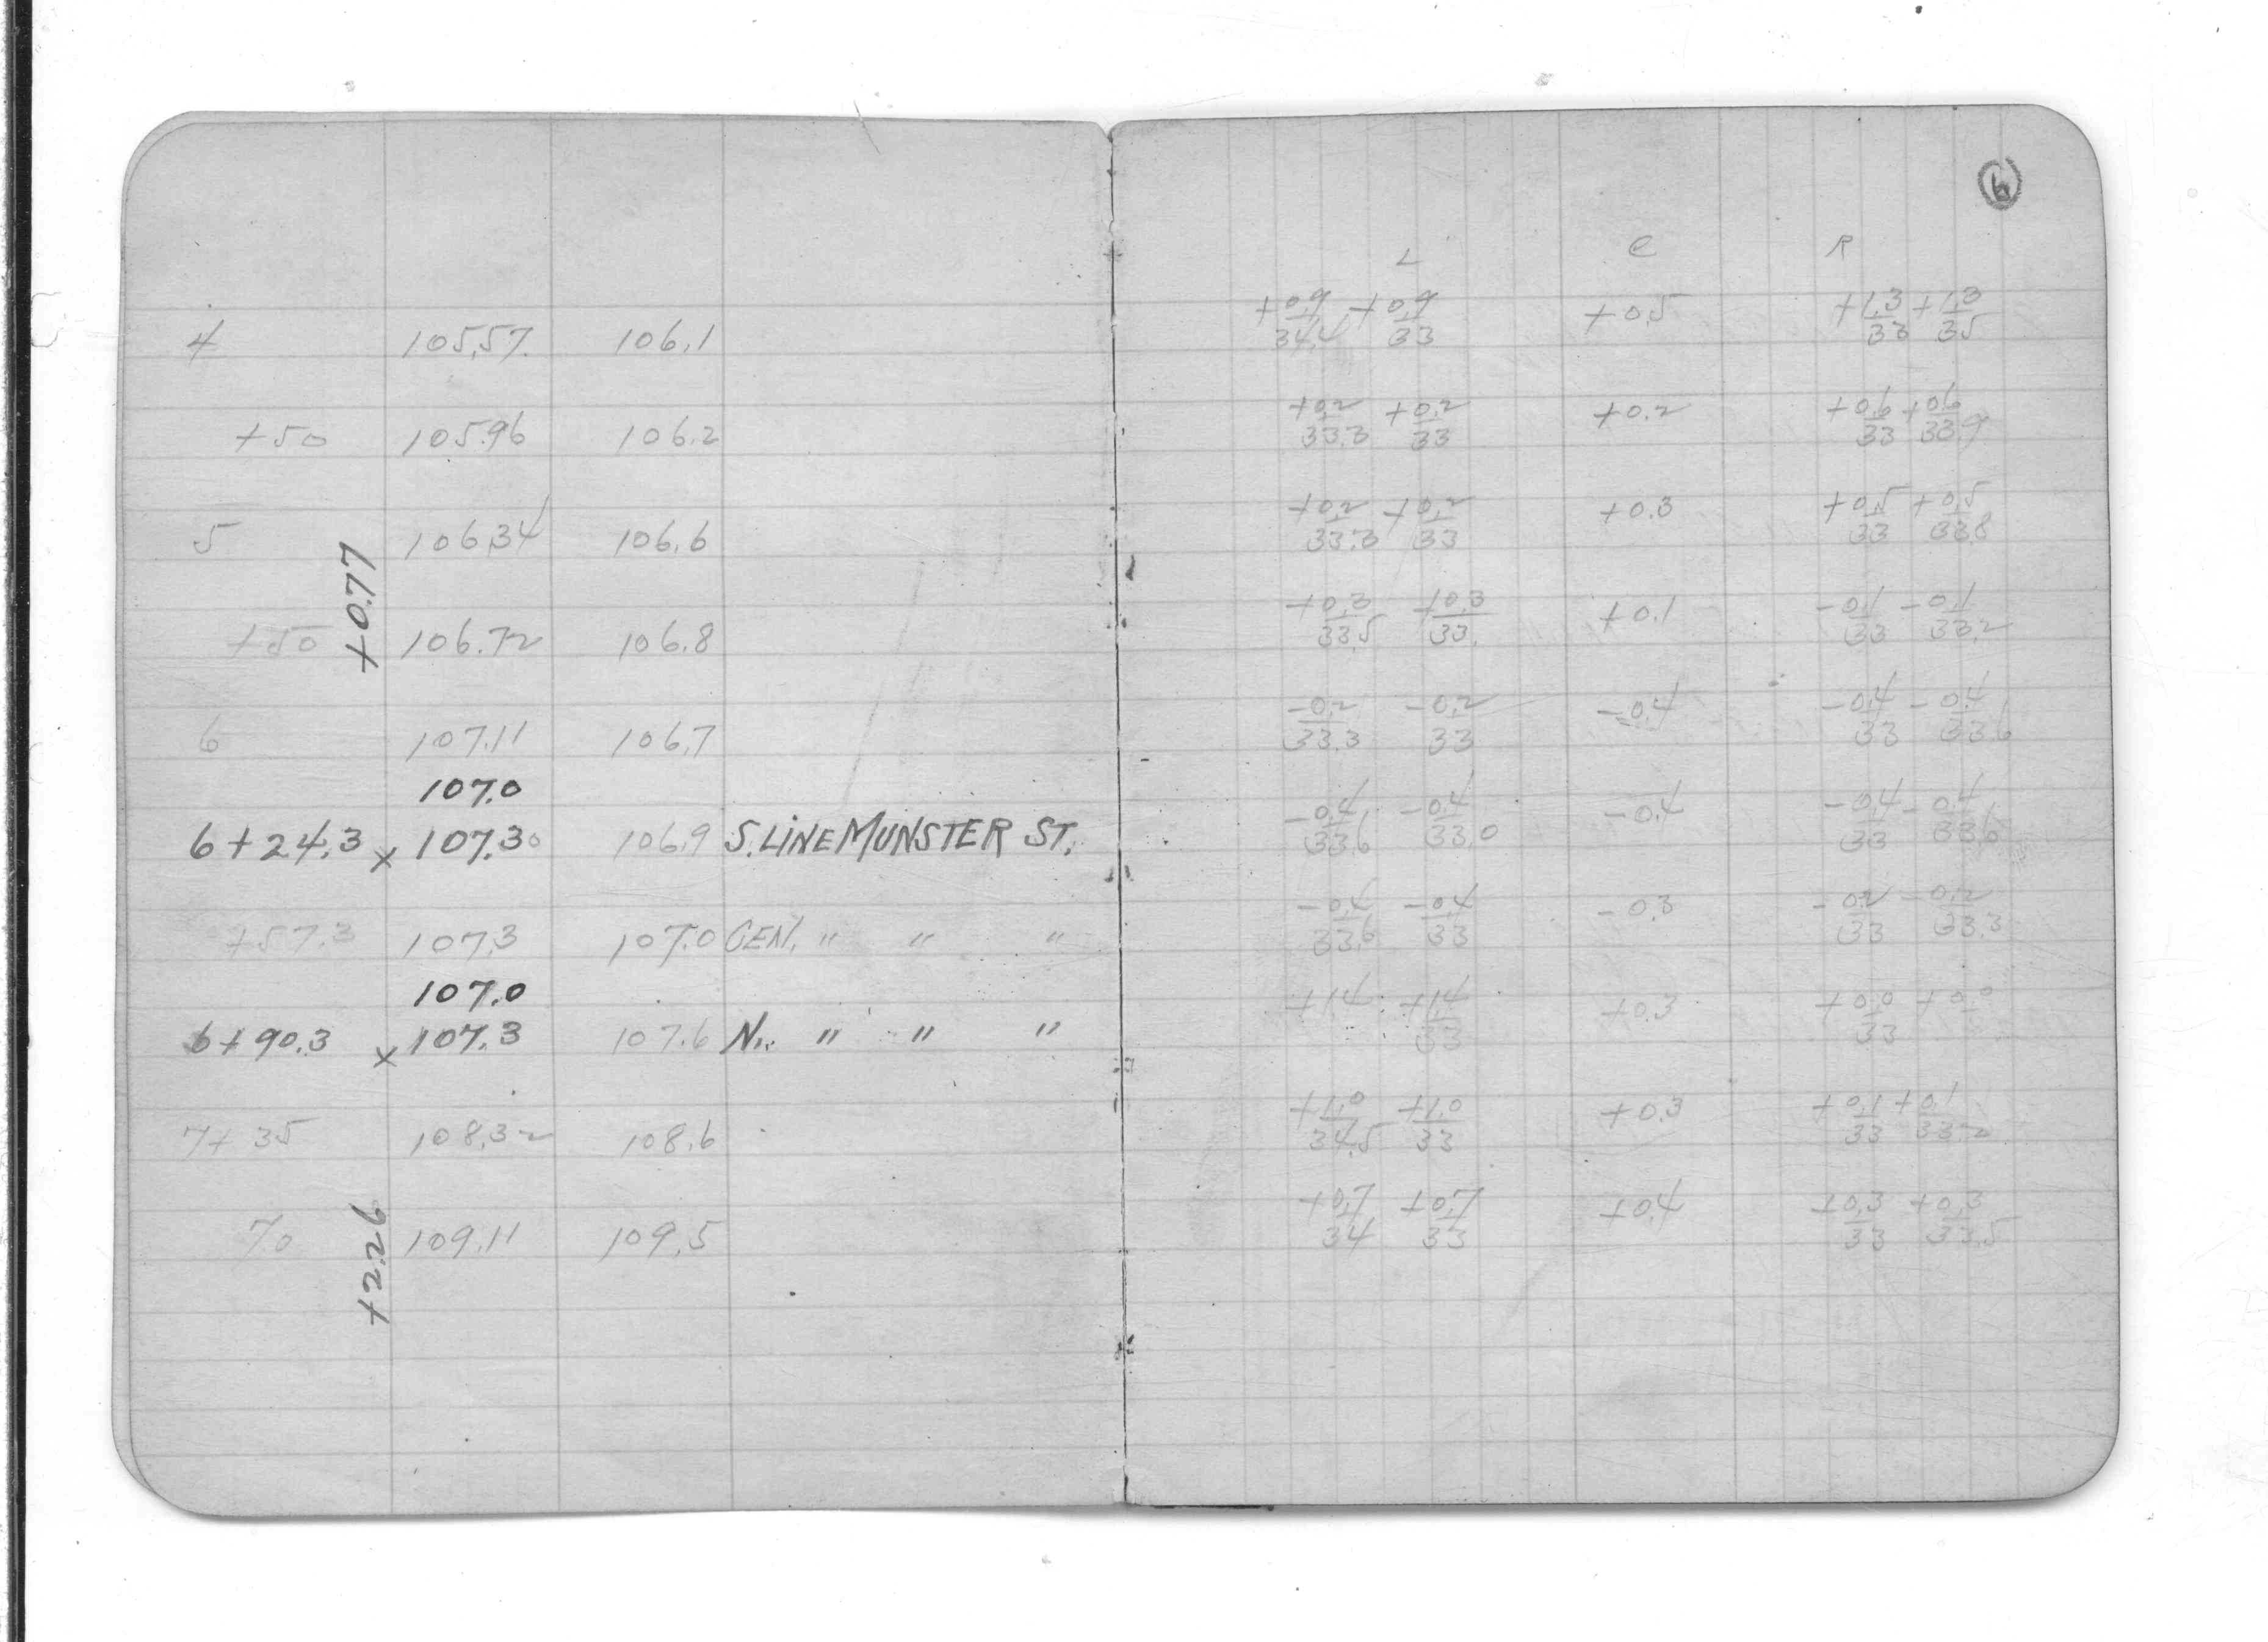 6
L C R
4 105.57 106.1 +0.9/34.4 +0.9/33 +0.5 +1.3/33 +1.3/35
+50 105.96 106.2 +0.2/33.3 +0.2/33 +0.2 +0.6/33 +0.6/33.9
5 106.34 106.6 +0.2/33.3 +0.2/33 +0.3 +0.5/33 +0.5/33.8
+0.77
+50 106.72 106.8 +0.3/33.5 +0.3/33. +0.1 -0.1/33 -0.1/33.2
6 107.11 106.7 -0.2/33.3 -0.2/33 -0.4 -0.4/33 -0.4/33.6
107.0
6+24.3 x 107.30 106.9 S. LINE MUNSTER ST. -0.4/33.6 -0.4/33.0 -0.4 -0.4/33 -0.4/33.6
+57.3 107.3 107.0 CEN. " " " -0.4/33.6 -0.4/33 -0.3 -0.2/33 -0.2/33.3
107.0
6+90.3 x 107.3 107.6 N. " " " +1.4 +1.4/33 +0.3 +0.0/33 +0.0
7+35 108.32 108.6 +1.0/34.5 +1.0/33 +0.3 +0.1/33 +0.1/33.2
70 109.11 109.5 +0.7/34 +0.7/33 +0.4 +0.3/33 +0.3/33.5
+2.26